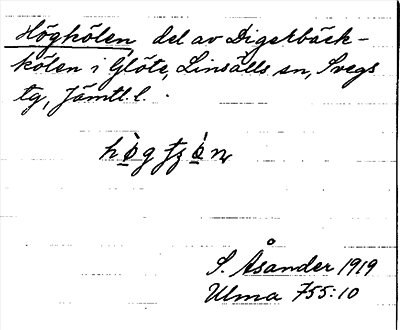 Högkölen, del av Digerbäck-
kölen i Glöte, Linsälls sn, Svegs
tg, Jämtl. l.
S. Åsander 1919
Ulma 755:10